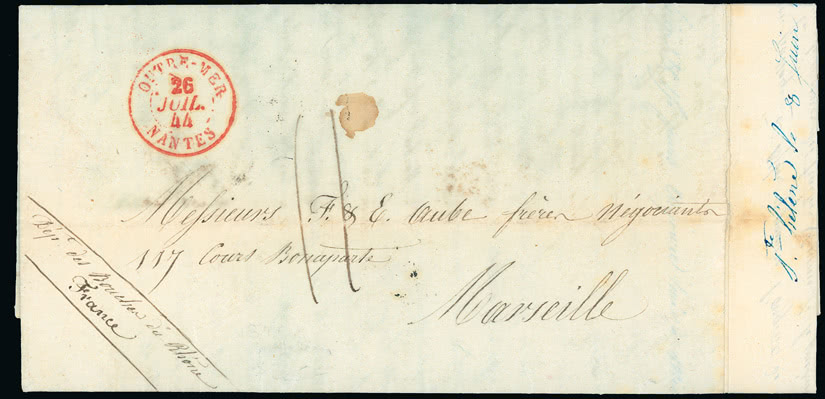 OUTRE-MER
26
JUIL.
44
NANTES
11
Messieurs F. & E. Aube frères Négociants
117 Cours Bonaparte
Marseille
Dép.t des Bouches du Rhône
France
S.te hélène le 8 Juin